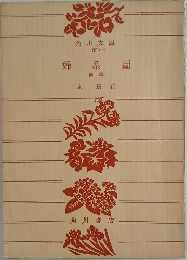 角川文庫
婦系圖
泉鏡花
角川書店